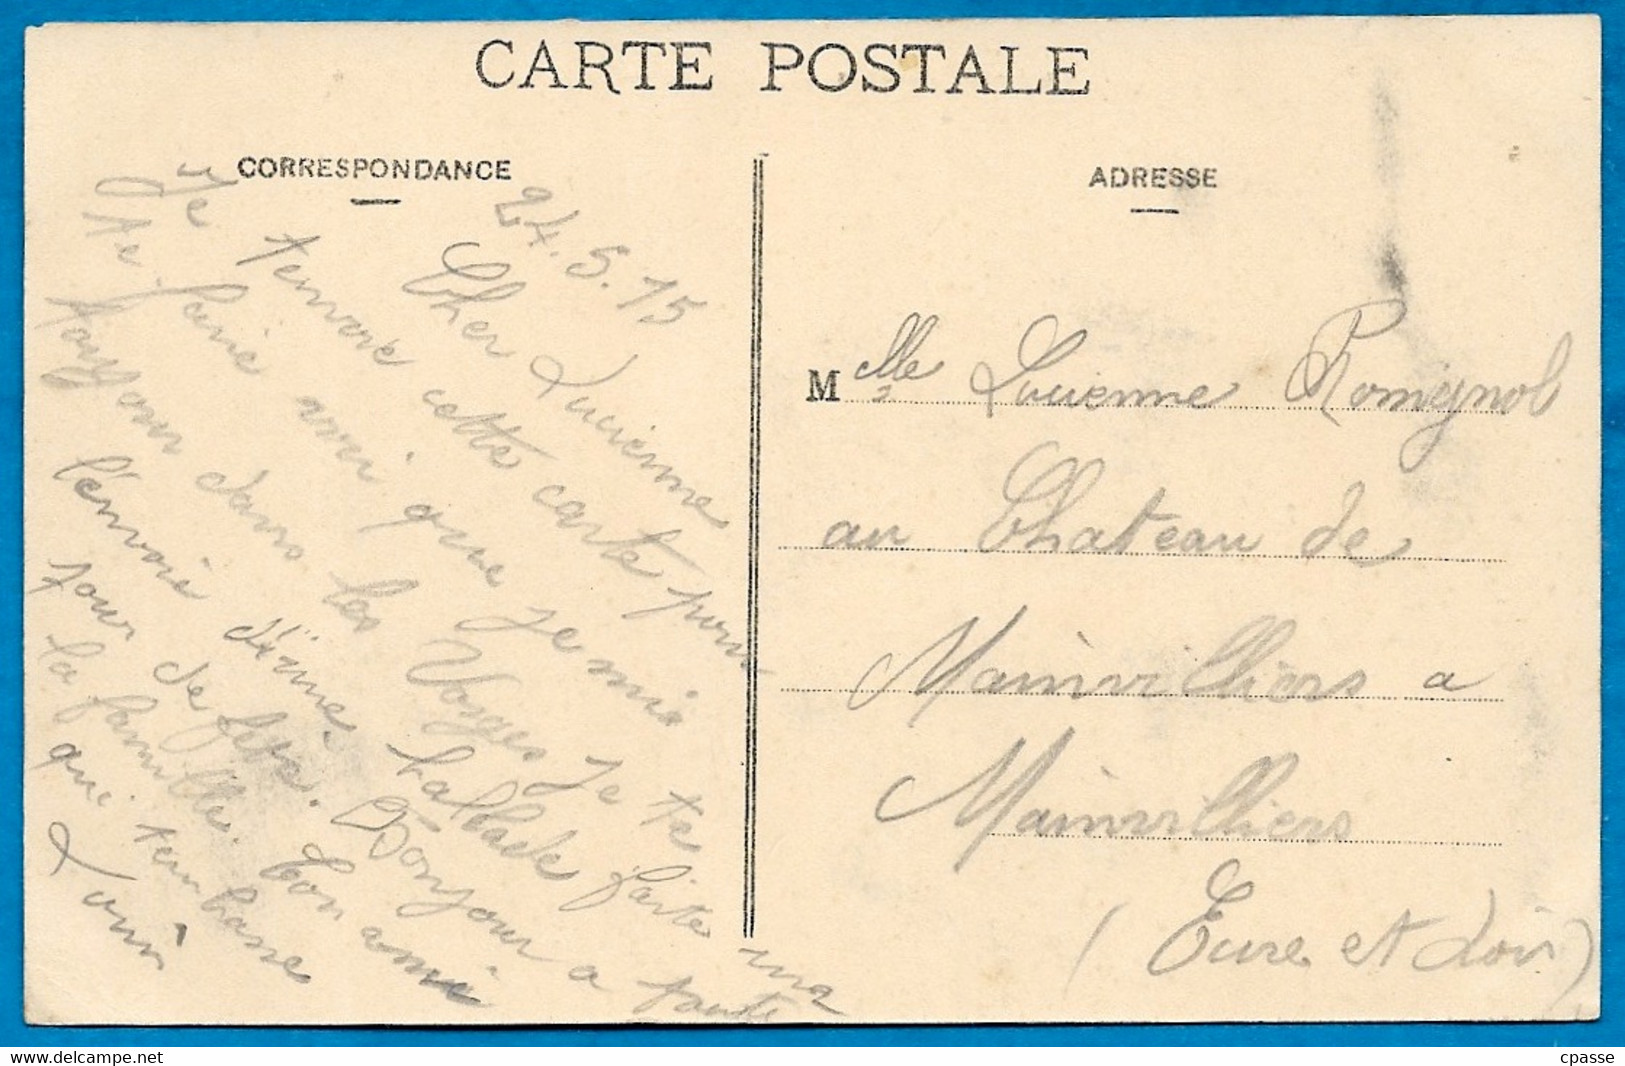 CARTE POSTALE
CORRESPONDANCE
24.5.15
Cher Lucienne
Je tenvoie cette carte pour
te faire voir que je mi
toujour dans les Vosges Je te
l'envoie d'une ballade faite
jour de fête. Bonjour a toute
la famille. ton ami
qui tembrasse
Louis
ADRESSE
Melle Lucienne Romignol
au Chateau de
Mainvilliers a
Mainvilliers
(Eure et Loir)
cpasse